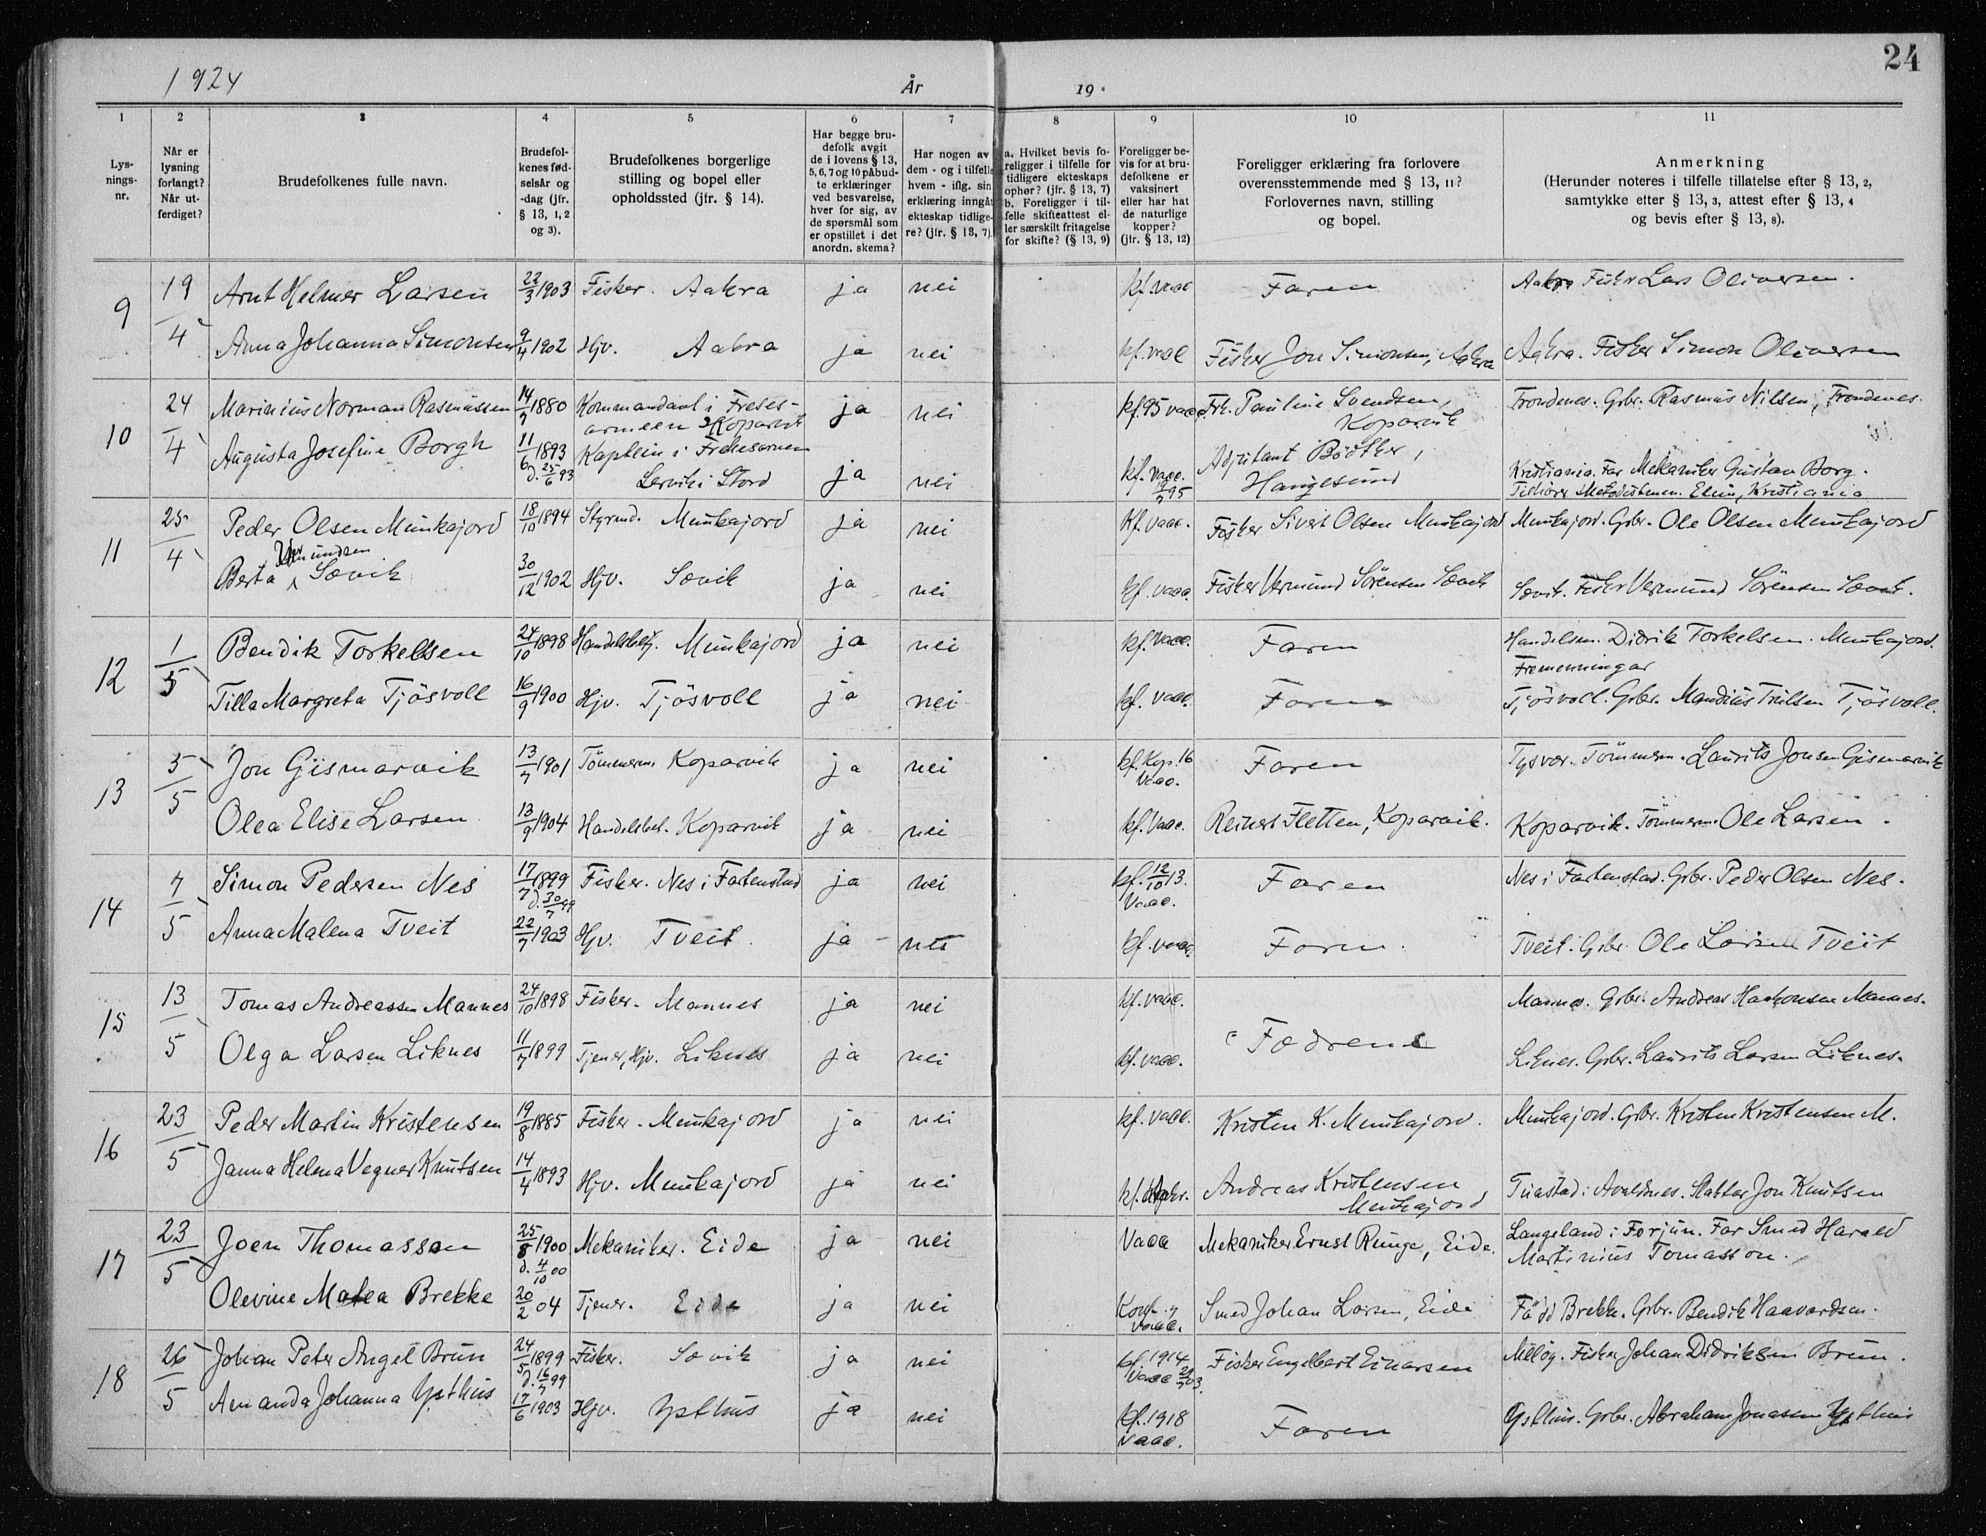 24
1924 År 19
1 2 3 4 5 6 7 8 9 10 11
Lysningsnr.
Når er lysning forlangt? Når utferdiget?
Brudefolkenes fulle navn.
Brudefolkenes fødselsår og -dag (jfr. § 13, 1, 2 og 3).
Brudefolkenes borgerlige stilling og bopel eller opholdssted (jfr. § 14).
Har begge brudefolk avgit de i lovens § 13, 5, 6, 7 og 10 påbudte erklæringer ved besvarelse, hver for sig, av de spørsmål som er opstillet i det anordn. skema?
Har nogen av dem - og i tilfelle hvem - iflg. sin erklæring inngått ekteskap tidligere? (jfr. § 13, 7).
a. Hvilket bevis foreligger i tilfelle for tidligere ekteskaps ophør? (jfr. § 13, 7) b. Foreligger i tilfelle skifteattest eller særskilt fritagelse for skifte? (§ 13, 9)
Foreligger bevis for at brudefolkene er vaksinert eller har hat de naturlige kopper? (jfr. § 13, 12)
Foreligger erklæring fra forlovere overensstemmende med § 13, 11? Forlovernes navn, stilling og bopel.
Anmerkning (Herunder noteres i tilfelle tillatelse efter § 13, 2, samtykke efter § 13, 3, attest efter § 13, 4 og bevis efter § 13, 8).
9 19/4 Arnt Helmer Larsen 22/3 1903 Fisker. Aakra ja nei kf. vacc Faren Aakra Fisker Lars Oliversen.
Anna Johanna Simonsen 9/4 1902 Hjv. Aakra ja nei kf. vacc Fisker Jon Simonsen, Aakra Aakra. Fisker Simon Oliversen
10 24/4 Marinius Norman Rasmussen 14/7 1880 Kommandant i Frelsesarmeen Kopervik ja nei kf 95 vacc Frk. Pauline Svendsen, Kopervik Trondenes. Grbr. Rasmus Nilsen, Trondenes.
Augusta Josefine Borgh 11/6 1893 d. 25/6 93 Kaptein i Frelsesarmeen Lervik i Stord ja nei kf. vacc. Adjutant Bödtker, Haugesund Kristiania. Far Mekaniker Gustav Borg. Tilhører Metodistmen. Elim, Kristiania
11 25/4 Peder Olsen Munkajord 18/10 1894 Styrmd. Munkajord ja nei Kf. vacc. Fisker Sivert Olsen Munkajord Munkajord. Grbr. Ole Olsen Munkajord
Berta Vermundsen Sævik 30/12 1902 Hjv. Sævik ja nei kf. vacc. Fisker Vermund Sörensen Sævik Sævik. Fisker Vermund Sörensen Sævik.
12 1/5 Bendik Torkelsen 24/10 1898 Handelsbetj. Munkajord ja nei kf. vacc. Faren Handelsm. Didrik Torkelsen. Munkajord. Fremenningar
Tilla Margreta Tjösvoll 16/9 1900 Hjv. Tjösvoll ja nei kf. vacc. Faren Tjösvoll. Grbr. Mandius Trulsen Tjösvoll.
13 5/5 Jon Gismarvik 13/7 1901 Tömmerm. Koparvik ja nei kf. Kop. 16 Vacc. Faren Tysvær. Tömmerm. Laurits Jonsen Gismarvik
Olea Elise Larsen 13/9 1904 Handelsbet. Koparvik ja nei kf. Vacc. Reinert Fletten, Koparvik. Koparvik. Tömmerm. Ole Larsen.
14 7/5 Simon Pedersen Nes 17/7 1899 d. 30/7 99 Fisker. Nes i Fartenstad ja nei kf. 12/10 13. Vacc. Faren Nes i Fartenstad. Grbr. Peder Olsen Nes.
Anna Malena Tveit 22/7 1903 Hjv. Tveit. ja nei kf. vacc Faren. Tveit. Grbr. Ole Larsen Tveit
15 13/5 Tomas Andreassen Mannes 24/10 1898 Fisker. Mannes ja nei kf. vacc. Fædrene Mannes. Grbr. Andreas Haakonsen Mannes.
Olga Larsen Liknes 11/7 1899 Tjener, Hjv. Liknes ja nei kf. vacc. Liknes. Grbr. Laurits Larsen Liknes.
16 23/5 Peder Martin Kristensen 19/8 1885 Fisker. Munkajord ja nei kf. vacc. Kristen K. Munkajord. Munkajord. Grbr. Kristen Kristensen M.
Janna Helena Vegner Knutsen 14/4 1893 Hjv. Munkajord ja nei kf. Andreas Kristensen Munkajord Tuastad i Avaldsnes. Slakter Jon Knutsen
17 23/5 Joen Thomasson 25/8 1900 d. 4/10 00 Mekaniker. Eide ja nei Vacc Mekaniker Ernst Runge, Eide. Langeland i Forjun. Far Smed Harald Martinius Tomasson.
Olevine Matea Brekke 20/2 04 Tjener. Eide ja nei Konf. y vacc. Smed Johan Larsen, Eide Född Brekke. Grbr. Bendik Haavardsen.
18 26/5 Johan Peter Angel Brun 24/5 1899 d. 16/7 99 Fisker. Sævik ja nei kf. 1914 vacc Fisker Engelbert Einarsen Fisker Johan Didriksen Brun.
Amanda Johanna Ysthus 17/6 1903 Hjv. Ysthus ja nei kf. 1918 vacc. Faren Ysthus. Grbr. Abraham Jonassen Ysthus